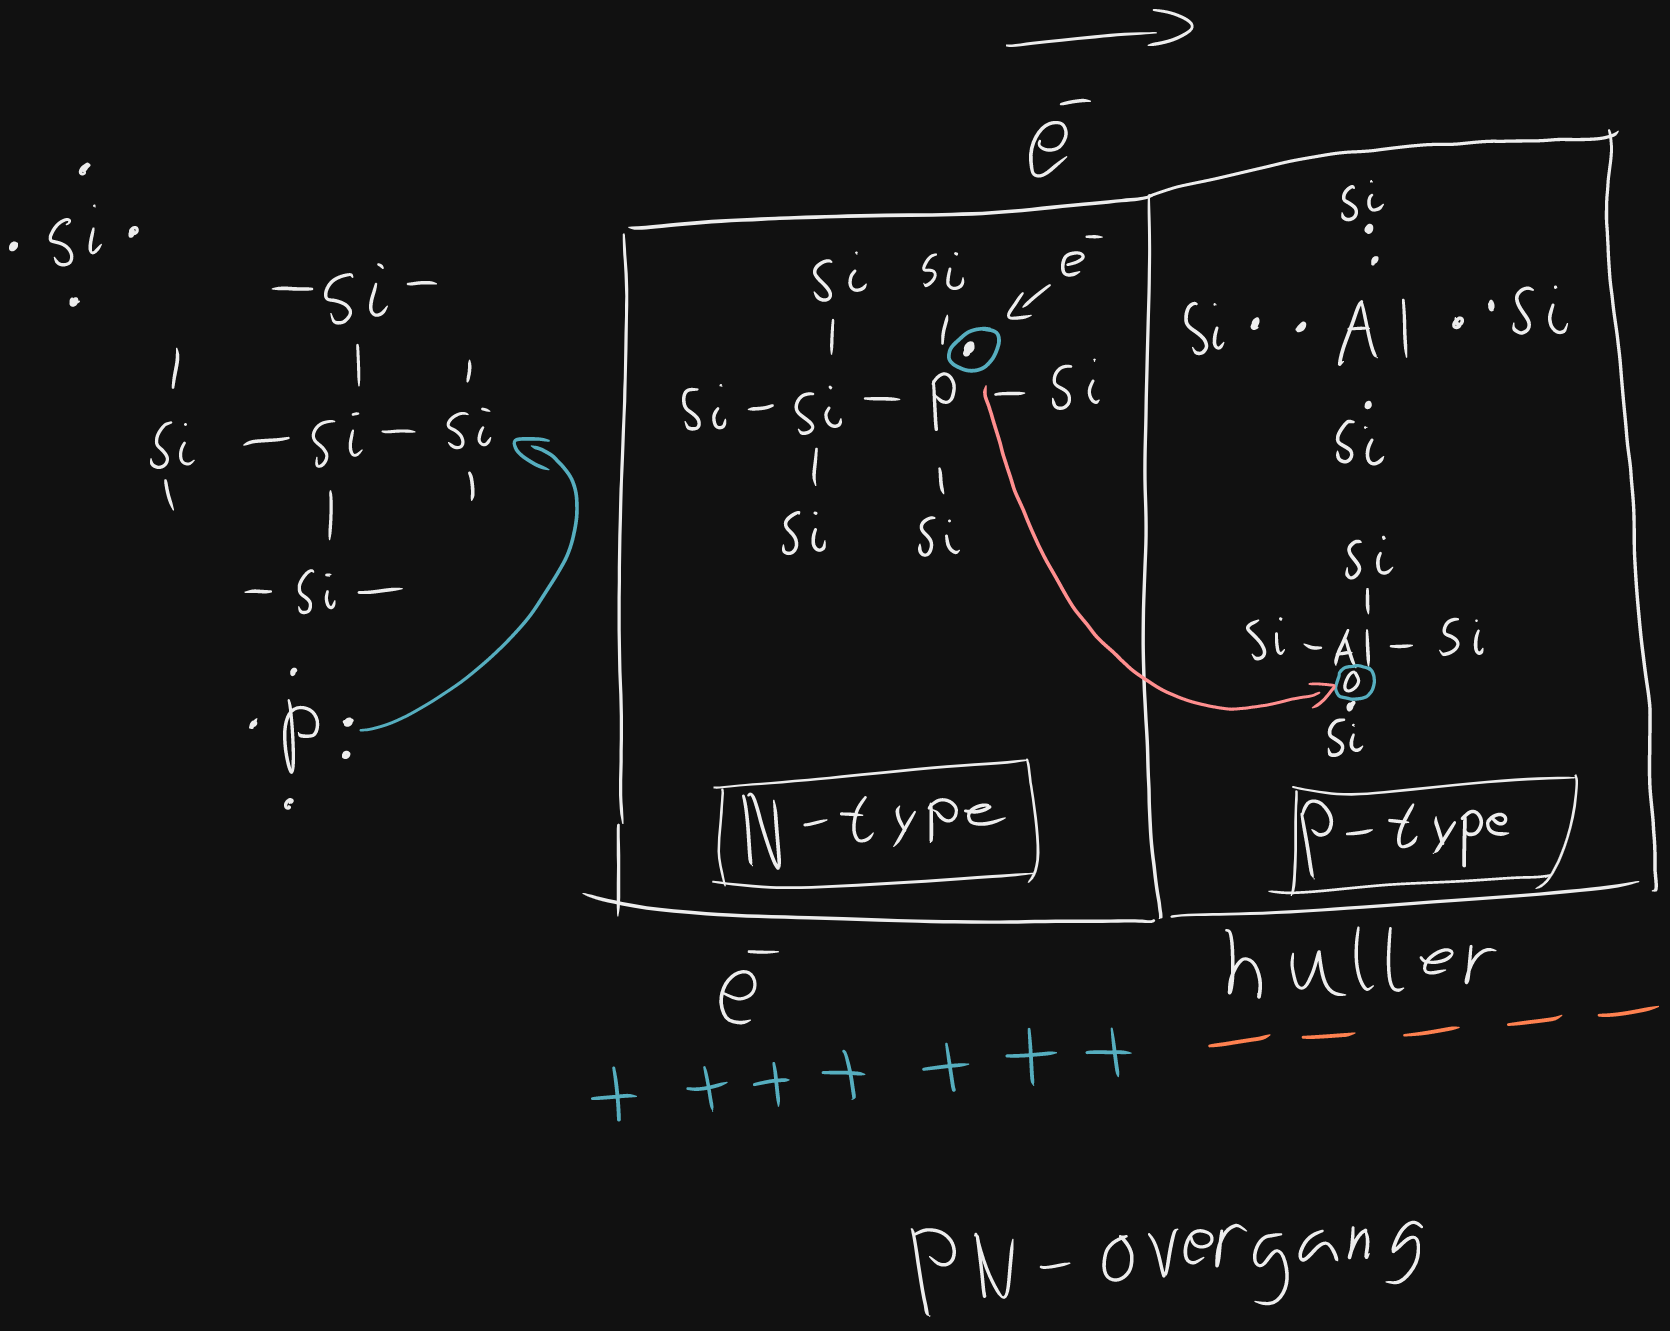 e⁻
· Si ·
–Si–
Si – Si – Si
–Si–
· P :
Si Si e⁻
Si – Si – P – Si
Si Si
N-type
Si
Si · · Al · · Si
Si
Si
Si – Al – Si
Si
P-type
e⁻ huller
+ + + + + + + – – – – –
PN-overgang